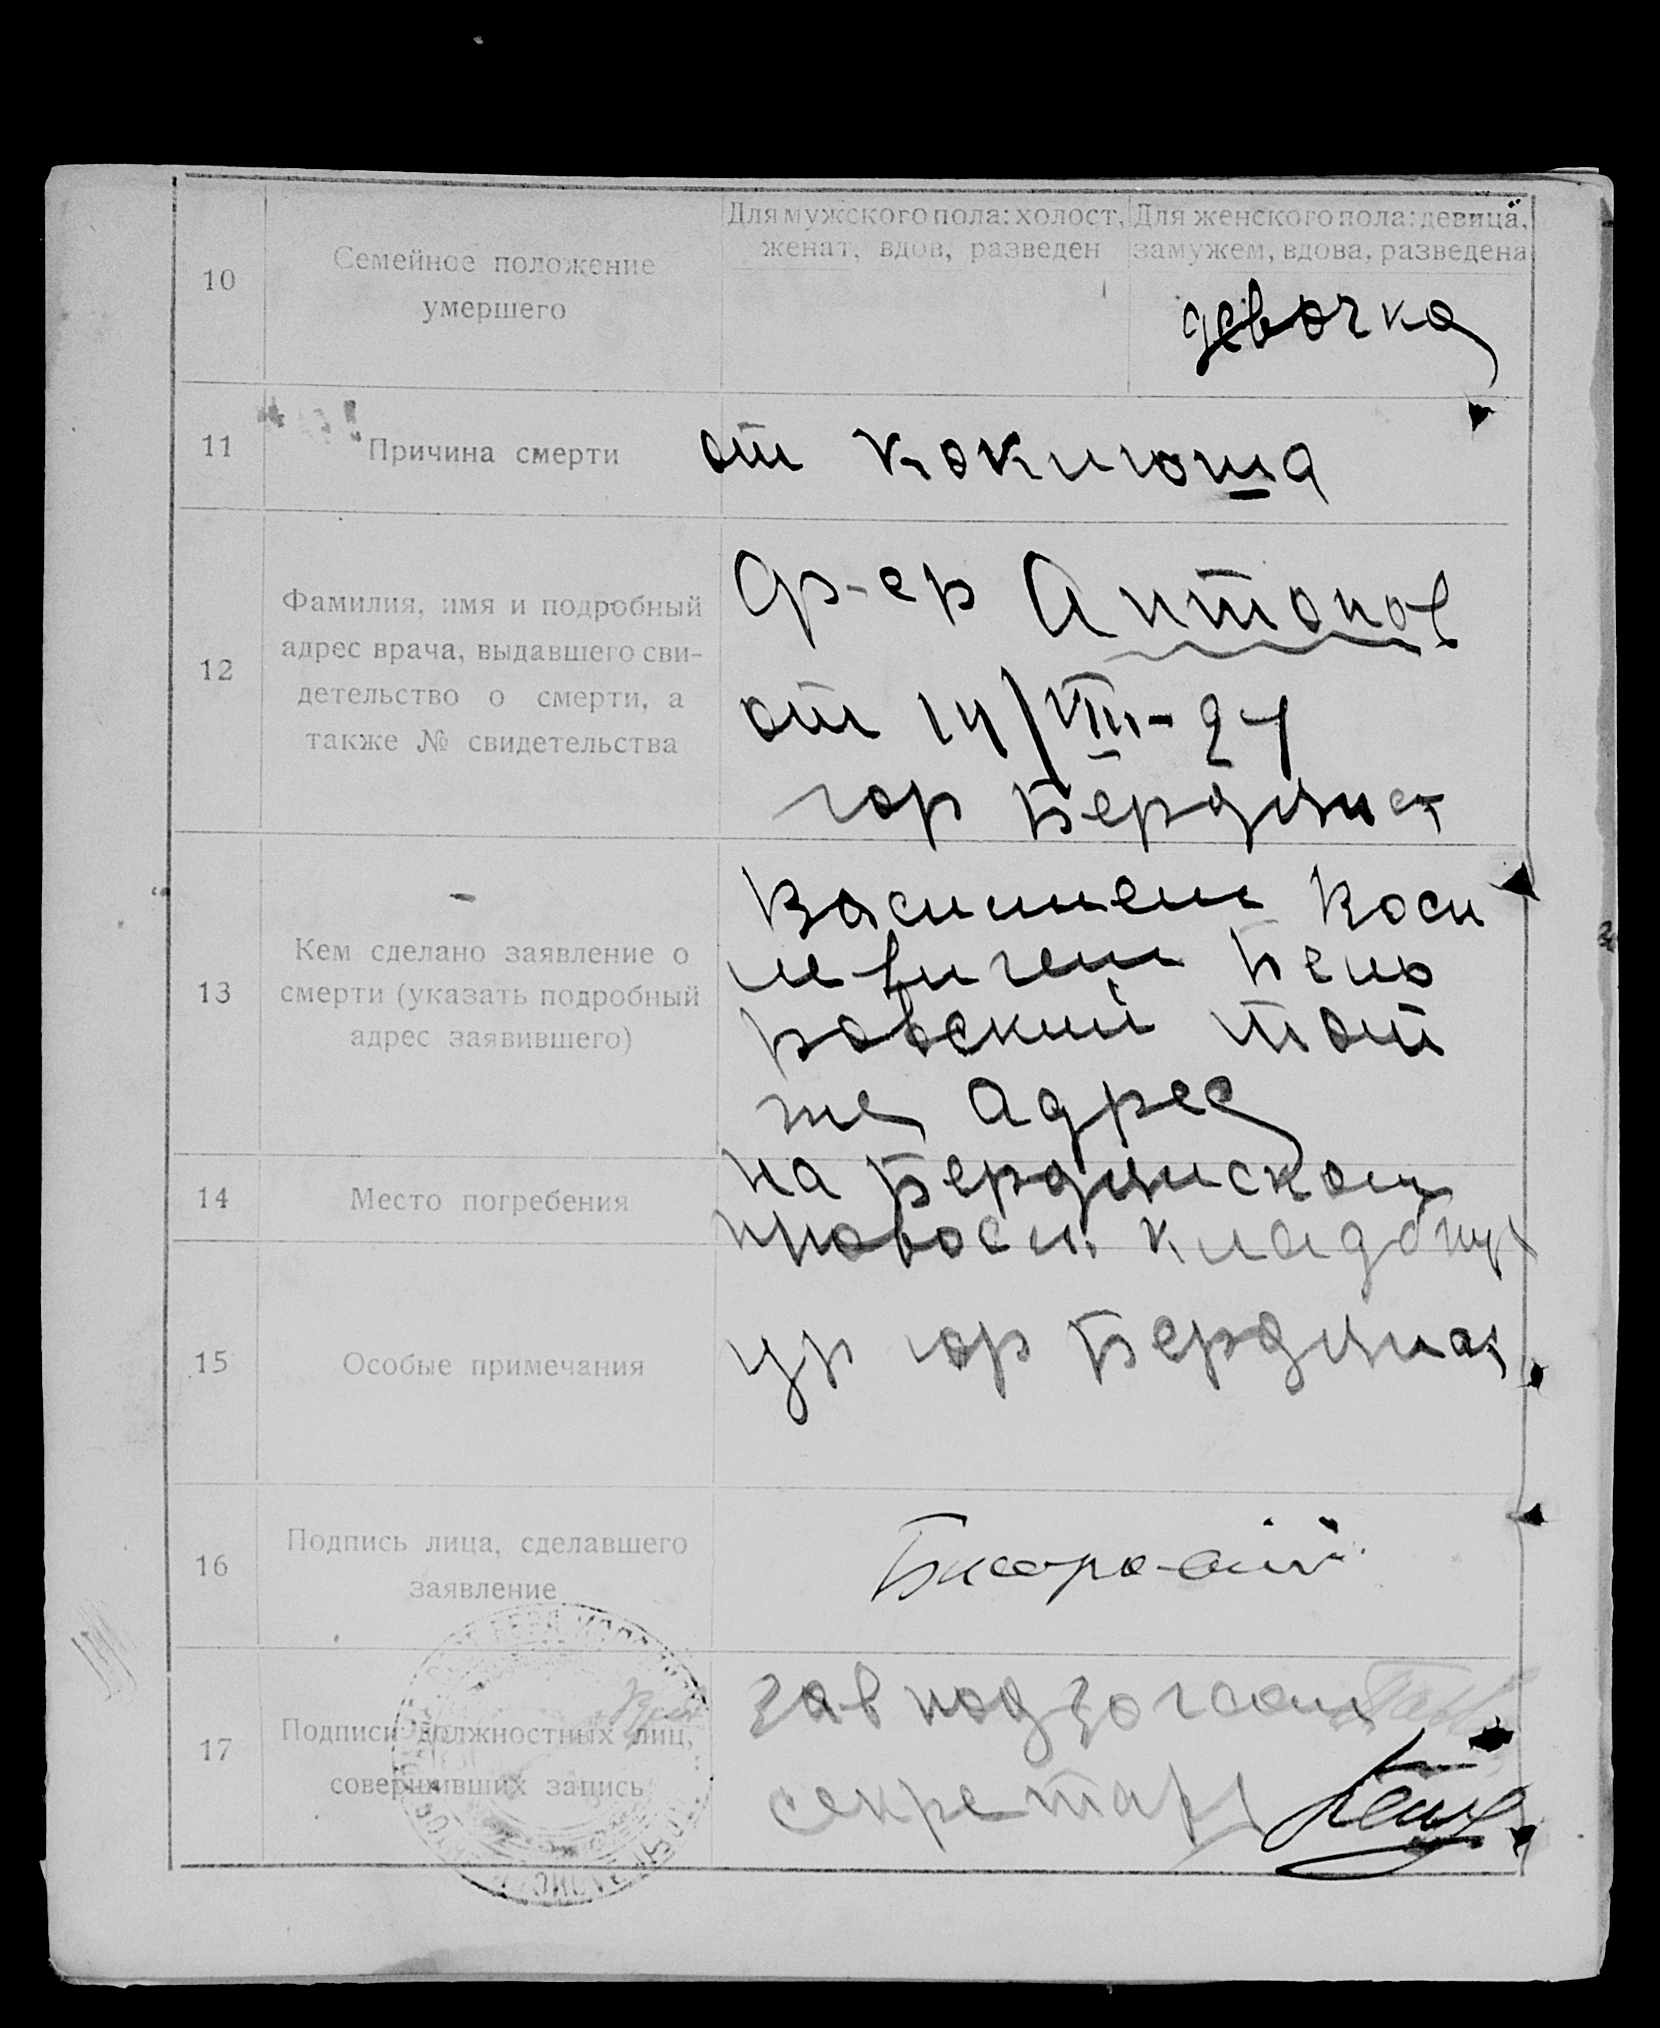 10
Семейное положение
умершего
Для мужского пола: холост,
женат, вдов, разведен
Для женского пола: девица,
замужем, вдова, разведена
девочка
11
Причина смерти
от коклюша
12
Фамилия, имя и подробный
адрес врача, выдавшего сви-
детельство о смерти, а
также № свидетельства
Ф-ер Антонов
от 14/VIII-24
гор Бердянск
13
Кем сделано заявление о
смерти (указать подробный
адрес заявившего)
Василием Васи
левичем
ровский тот
же адрес
14
Место погребения
на Бердянском
правосл. кладбищ
15
Особые примечания
гор Бердянск
16
Подпись лица, сделавшего
заявление
17
Подписи должностных лиц,
совершивших запись
Зав подзагсом
секретарь